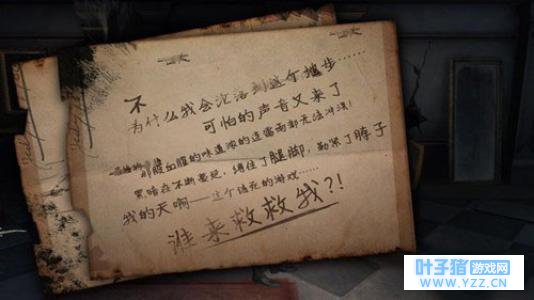 不
为什么我会沦落到这个地步……
可怕的声音又来了
那股血腥的味道浓的连雷雨都无法冲淡!
黑暗在不断蔓延,缠住了腿脚,勒紧了脖子
我的天啊——这个该死的游戏……
谁来救救我?!
叶子猪游戏网
WWW.YZZ.CN